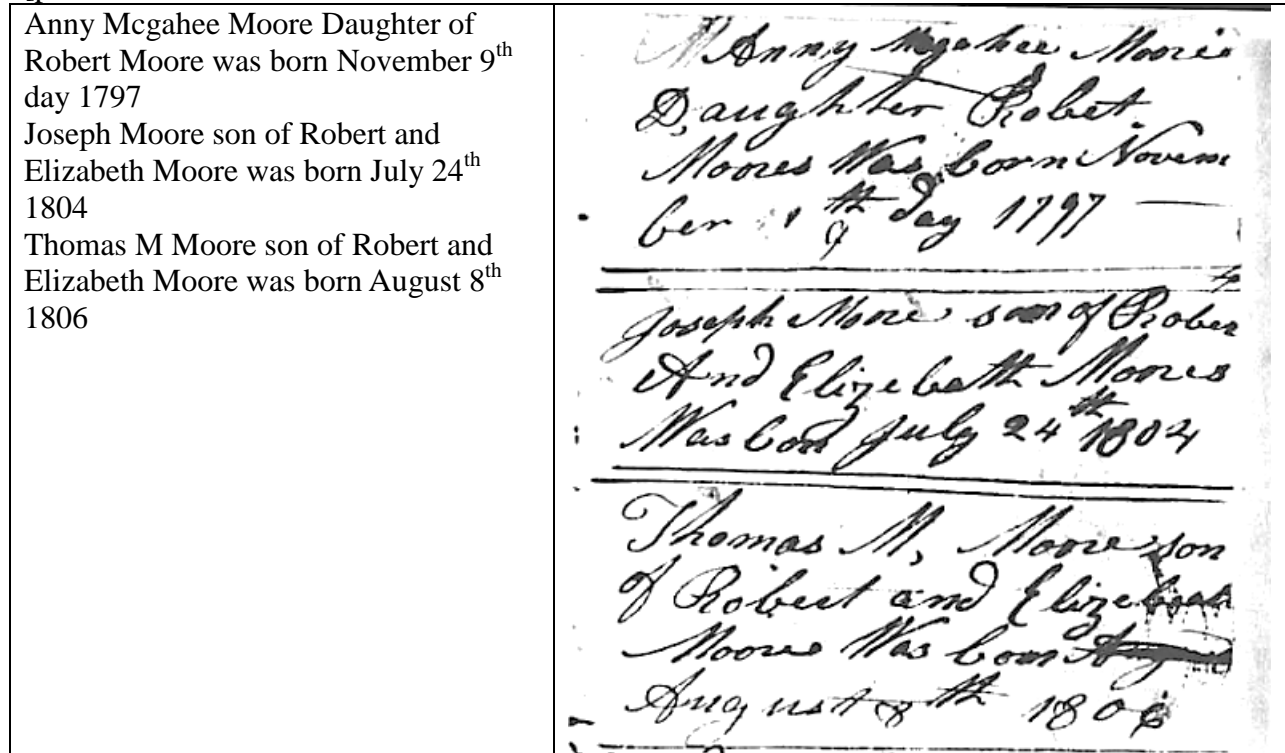 Anny Mcgahee Moore Daughter of
Robert Moore was born November 9th
day 1797
Joseph Moore son of Robert and
Elizabeth Moore was born July 24th
1804
Thomas M Moore son of Robert and
Elizabeth Moore was born August 8th
1806
Anny Mcgahee Moore
Daughter Robet
Moores Was born Novem
ber th day 1797
9
Joseph Moore son of Rober
And Elizebath Moores
Was Born July 24th 1804
Thomas M, Moore son
of Robert and Elizebeath
Moore Was born Aug
August 8th 1806